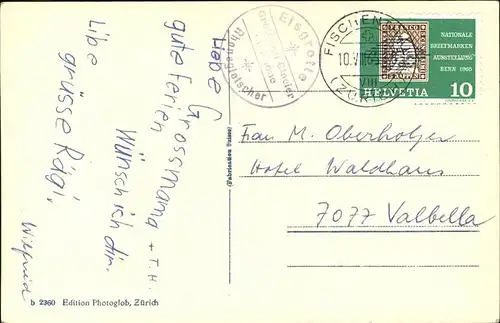 Eisgrotte
Rhonegletscher
FISCHEN
10.VIII.65
(ZÜRICH)
NATIONALE
BRIEFMARKEN
AUSSTELLUNG
BERN 1965
HELVETIA 10
Liebe Grossmama + T.H.
gute Ferien
Wünsch ich dir.
Libe
grüsse Rägi,
Wilfried
Frau M. Oberholzer
Hotel Waldhaus
7077 Valbella
(Fabrication Suisse)
b 2360 Edition Photoglob, Zürich